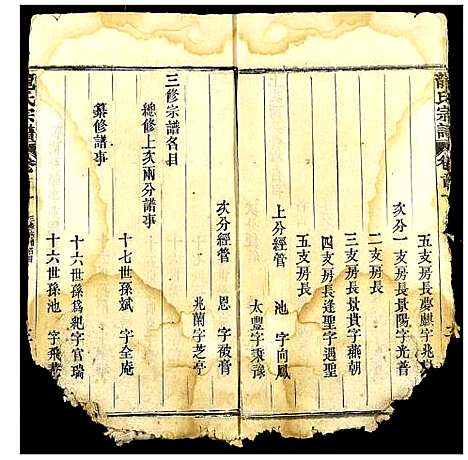 龍氏宗譜 卷首
五支房長夢麒字兆
次分一支房長景陽字光普
二支房長
三支房長景貴字燕朝
四支房長逢聖字遇聖
五支房長
上分經管 池 字向鳳
太豐字
次分經管 恩 字被膏
兆蘭字芝亭
三修宗譜名目
總修上次兩分譜事
十七世孫斌 字全庵
纂修譜事
十六世孫為紀字官瑞
十六世孫池 字飛
龍氏宗譜